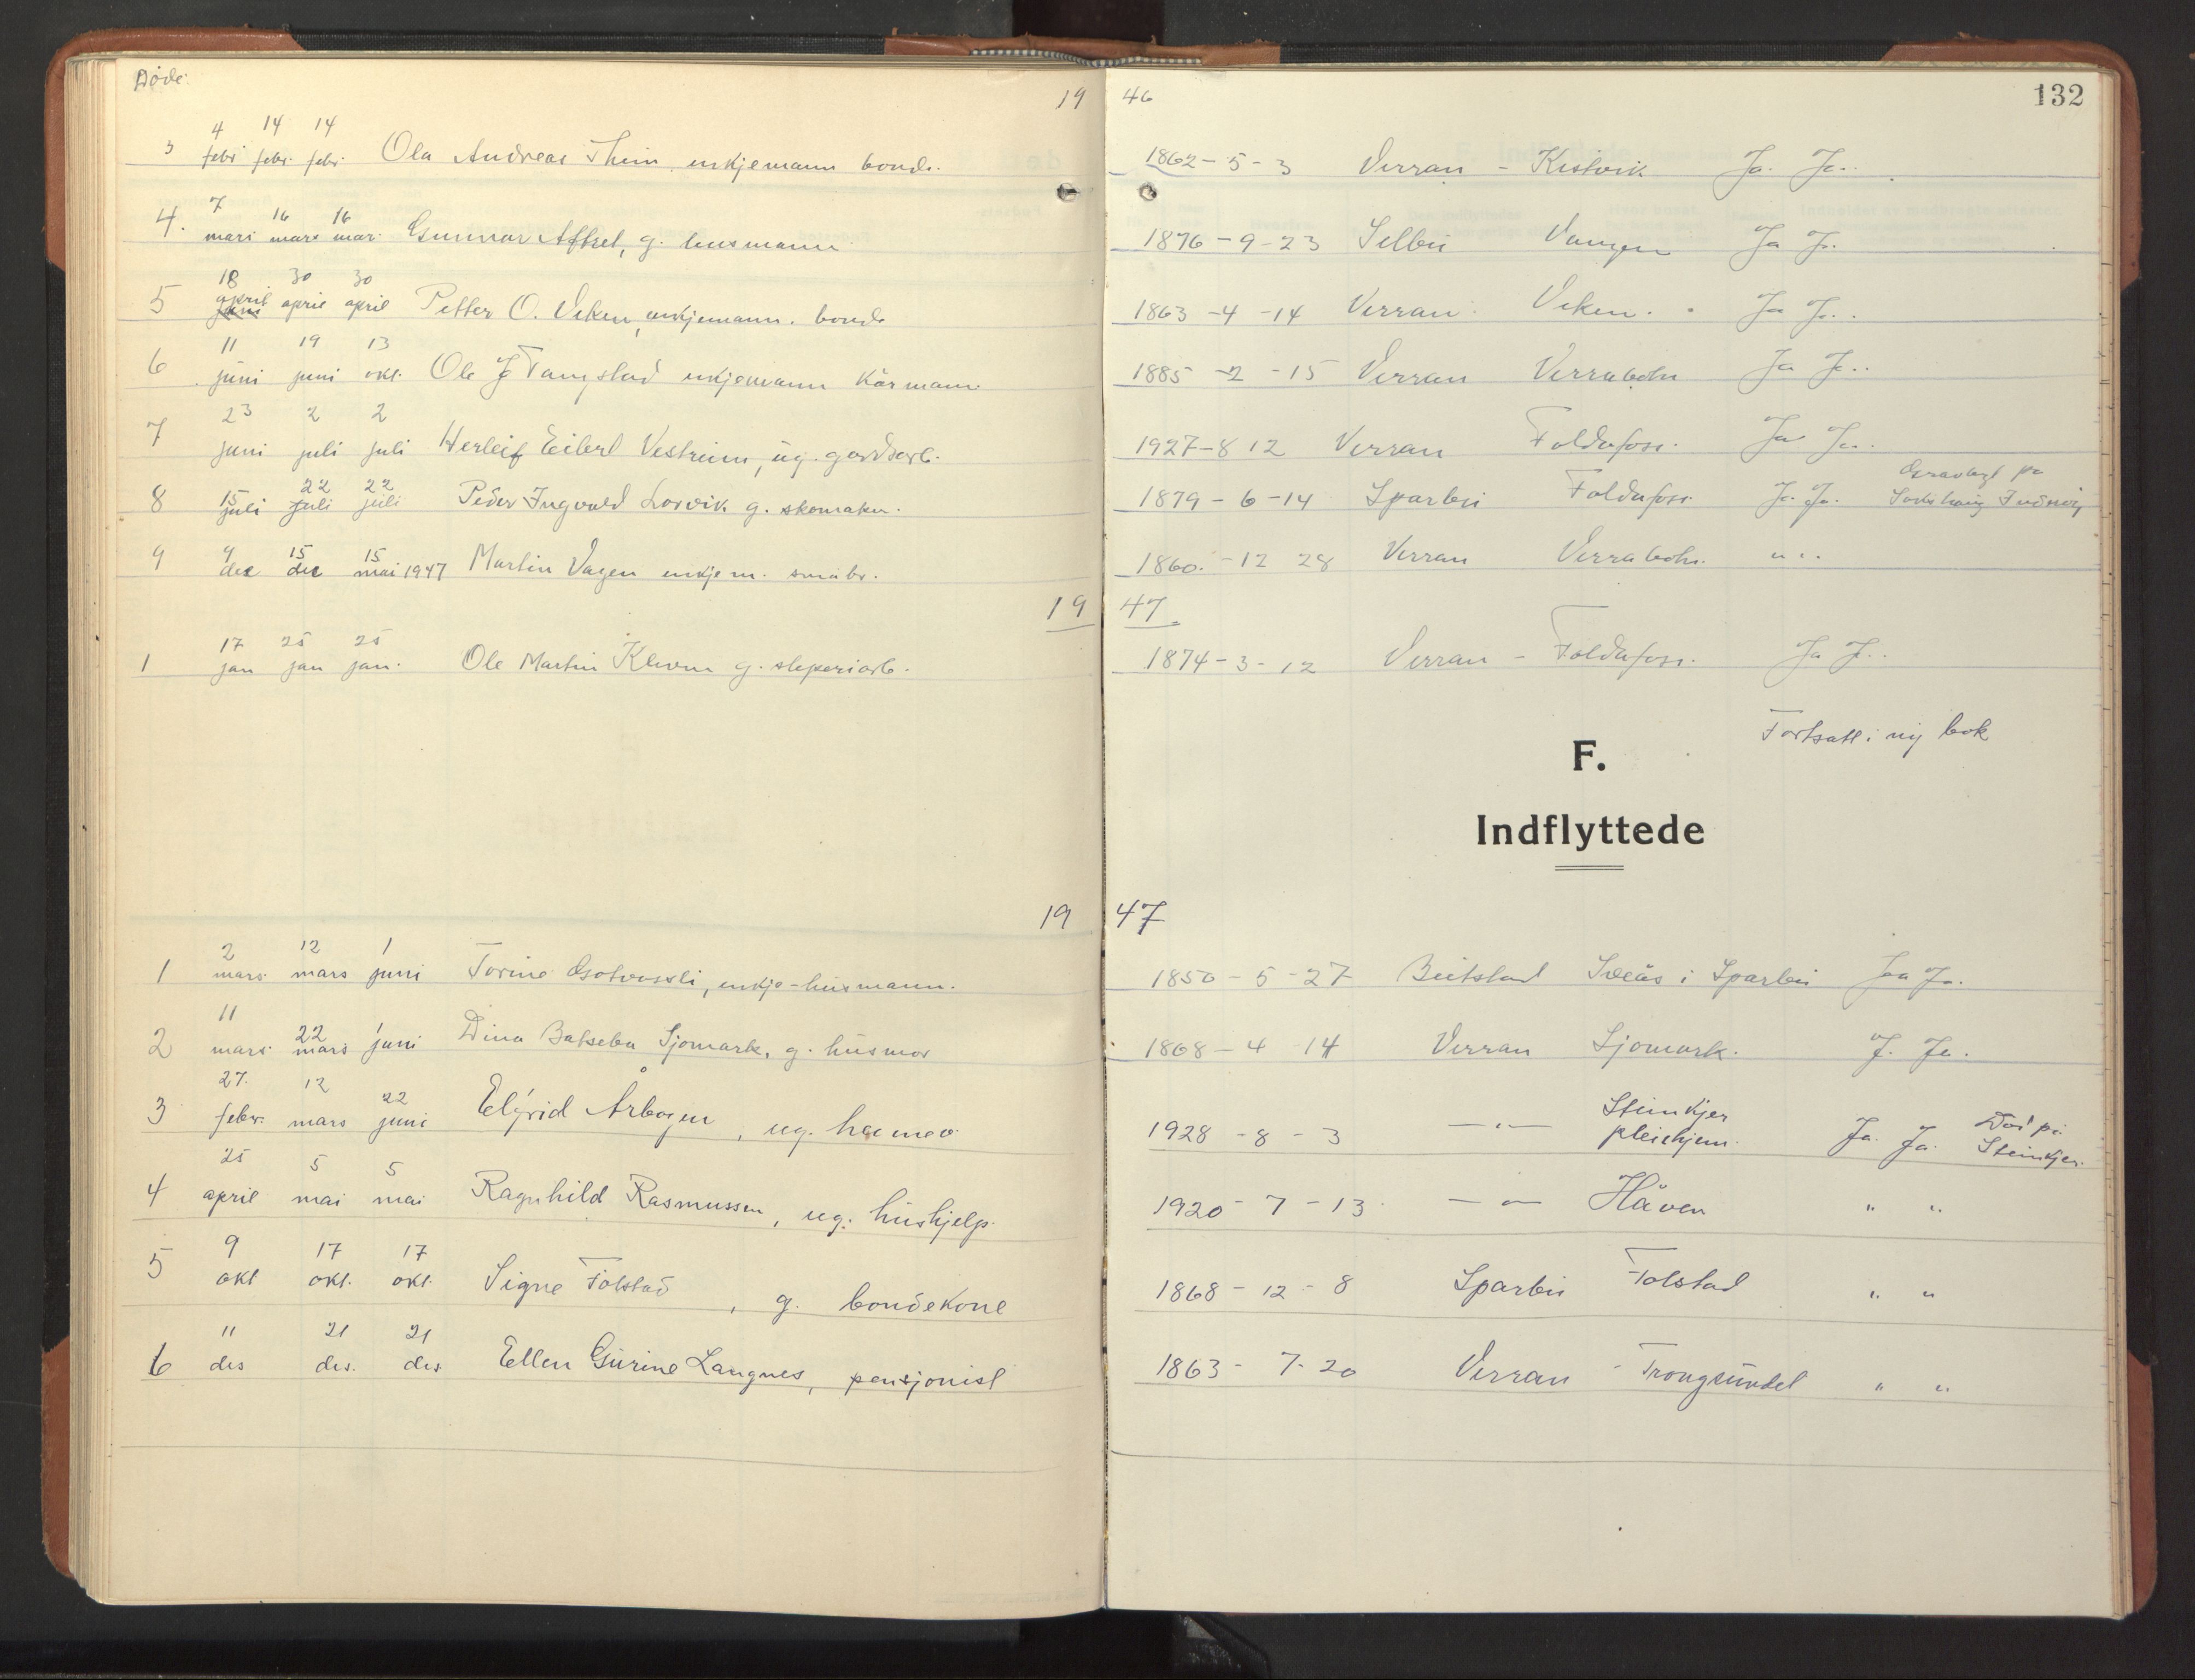 Døde.
19 46 132
4 14 14
3 febr febr. febr. Ola Andreas Thun, enkjemann bonde. 1862-5-3 Verran - Kistvik Ja. Ja.
7 16 16
4. mars mars mar. Gunnar Aftret, g. husmann 1876-9-23 Selbu Vangen Ja Ja.
18 30 30
5 april april april Petter O. Veken, enkjemann. bonde 1863-4-14 Verran. Veken. Ja Ja.
11 19 13
6 juni juni okt. Ole J Tangstad enkjemann Kårmann 1885-2-15 Verran Verrabotn Ja Ja.
23 2 2
7 juni juli juli Herleif Eilert Vestreim, ug. gardsarb. 1927-8 12 Verran Foldafoss. Ja Ja.
15 22 22
8 juli juli juli Peder Ingvald Lorvik g. skomaker. 1879-6-14 Sparbu Foldafoss Ja. Ja. Gravlagt på
Inderøy
9 15 15
9 des des mai 1947 Martin Vagen enkjem. småbr. 1860.-12 28 Verran Verrabotn. " "
19 47
17 25 25
1 jan jan jan. Ole Martin Kleven g. sleperiarb. 1874-3-12 Verran - Foldafoss. Ja Ja.
Fortsatt i ny bok
F.
Indflyttede
19 47
2 12 1
1 mars mars juni Torine, enkje-husmann. 1850-5-27 Beitstad i Sparbu Jaa Ja.
11 22 1
2 mars mars juni Dina Batseba Sjomark, g. husmor 1868-4 14 Verran Sjomark. J. Ja.
27. 12 22
3 febr. mars juni Elfrid Årbogen, ug. heimev. 1928-8-3 -"- Steinkjer
pleiehjem. Ja. Ja. Død på
Steinkjer.
25 5 5
4 april mai mai Ragnhild Rasmussen, ug. hushjelp. 1920-7-13 -"- Håven " "
9 17 17
5 okt okt. okt. Signe Folstad, g. bondekone 1868-12-8 Sparbu Folstad " "
11 21 21
6 des des. des Ellen Gurine Langnes, pensjonist 1863-7-20 Verran Trongsundet " "